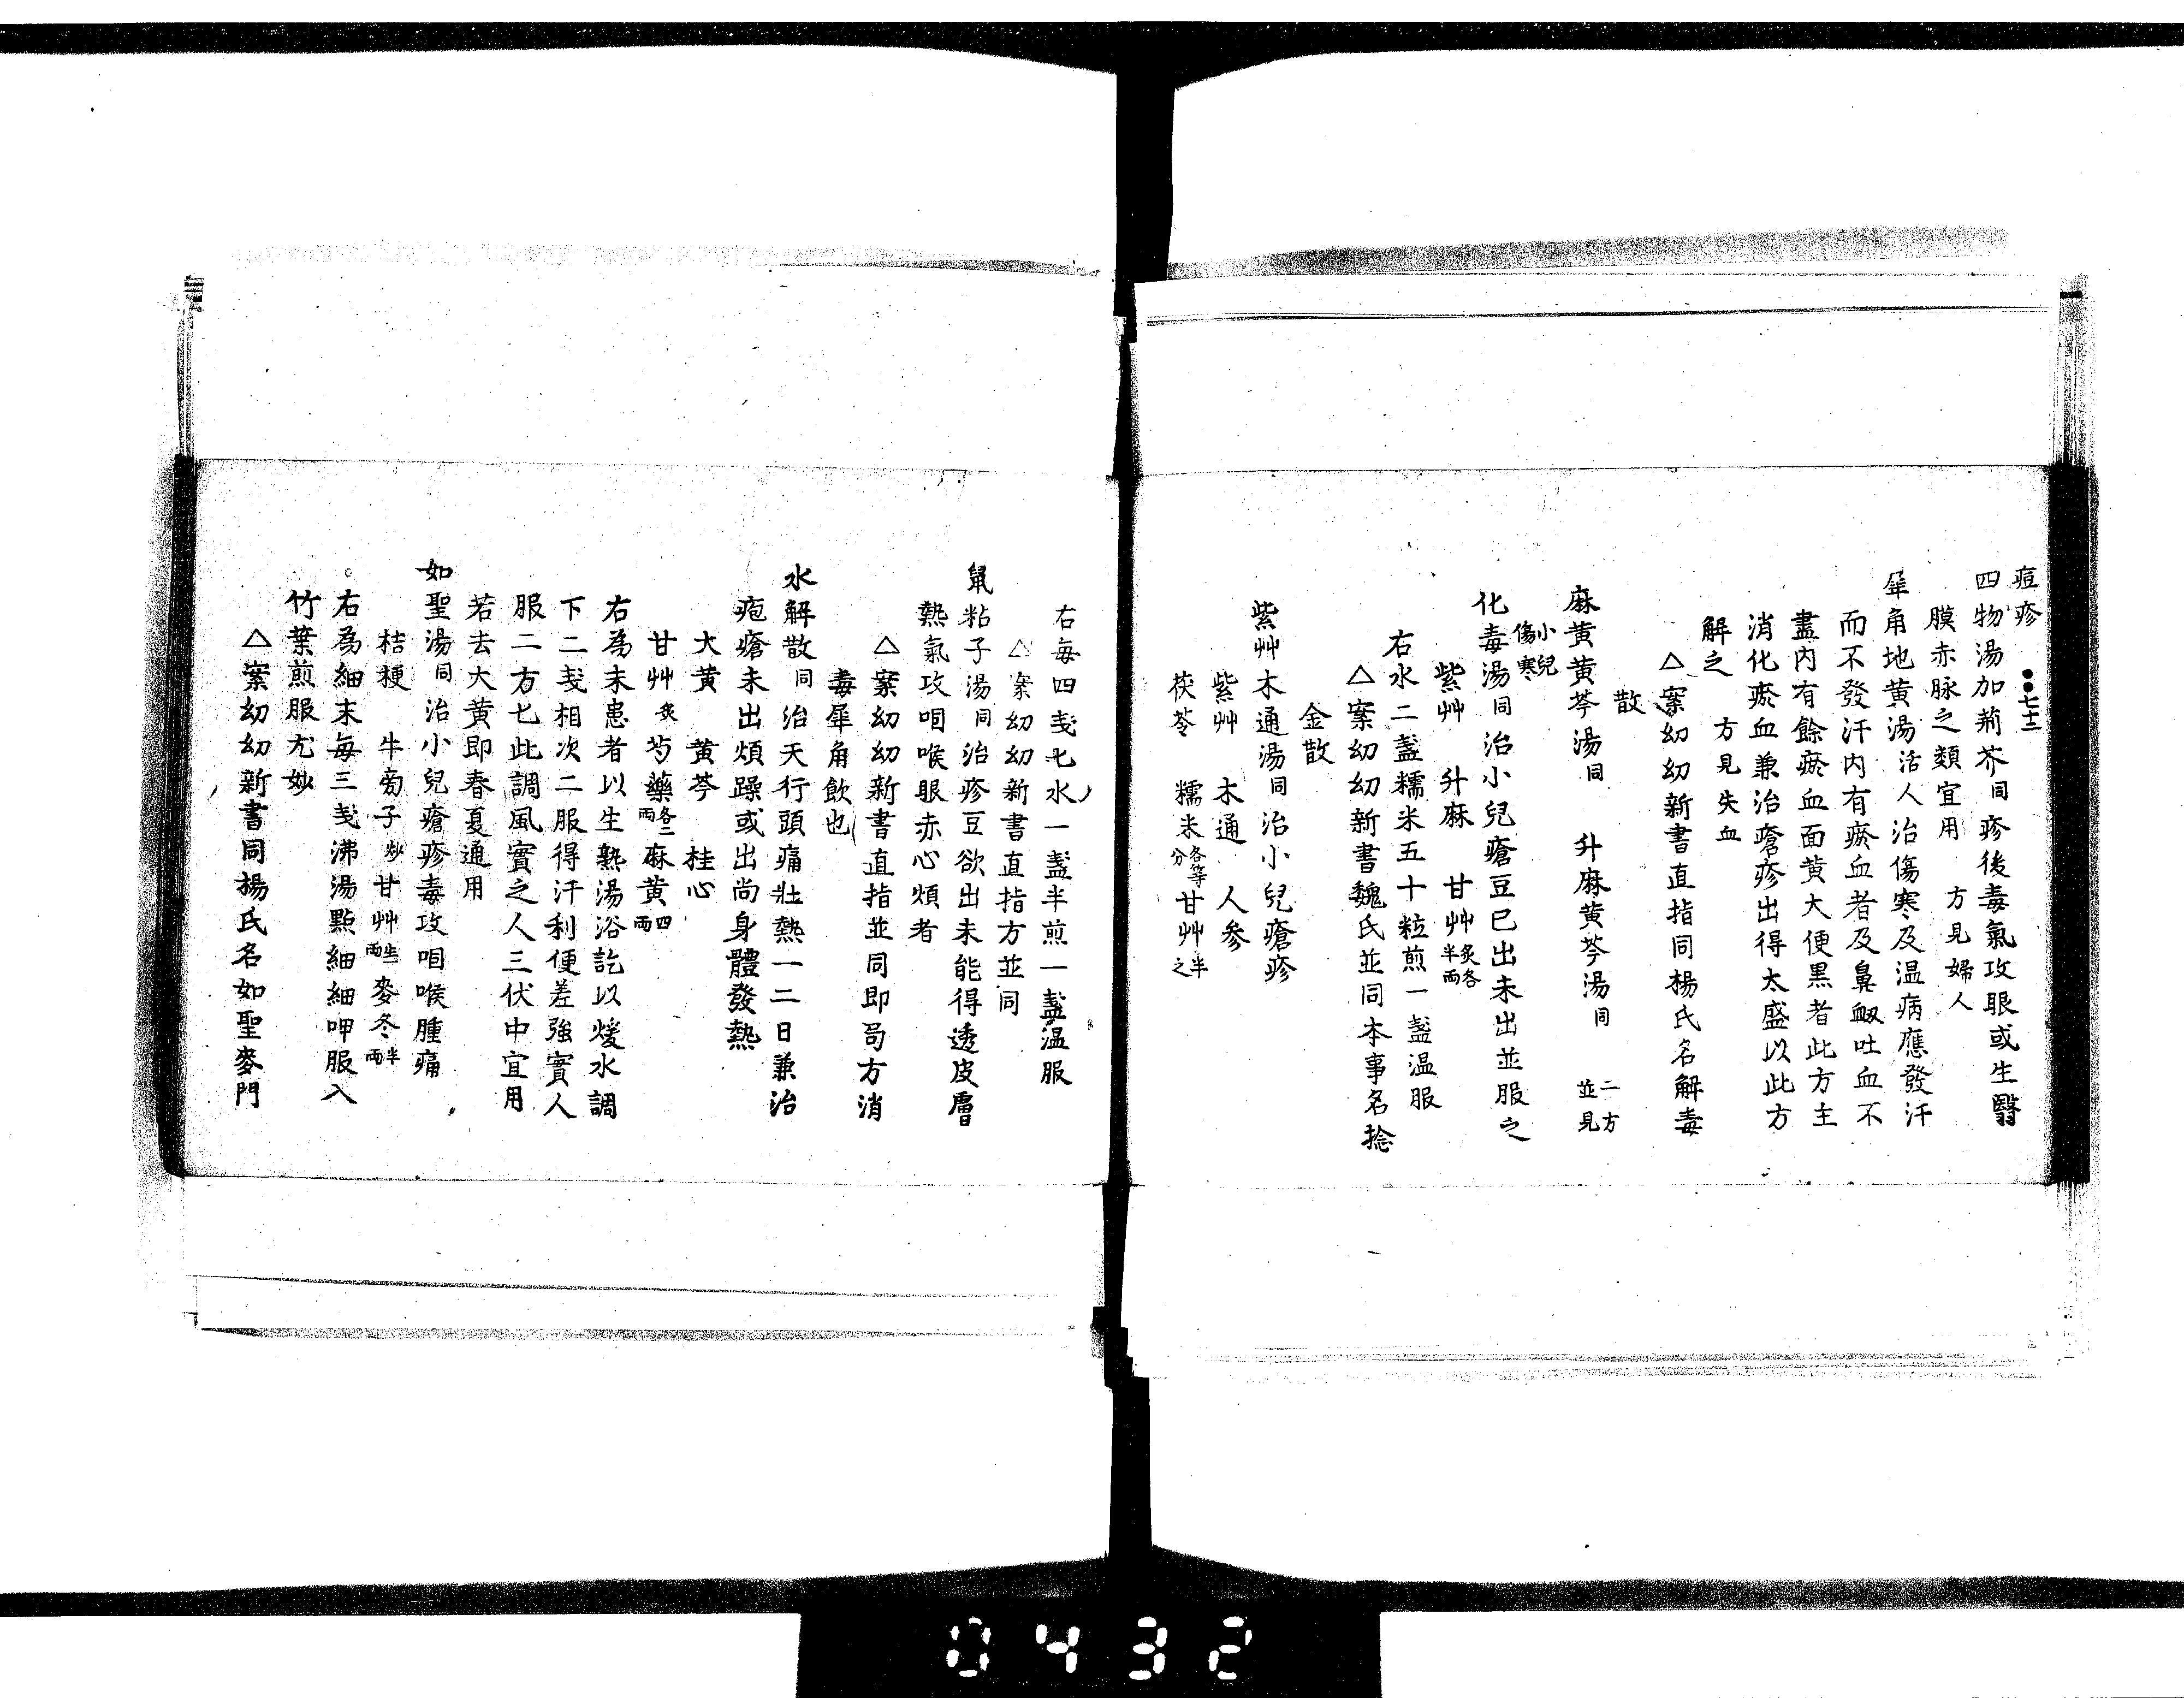 痘疹
●●七十二
四物湯加荊芥同疹後毒氣攻眼或生翳
膜赤脉之類宜用 方見婦人
犀角地黄湯活人治傷寒及温病應發汗
而不發汗内有瘀血者及鼻衂吐血不
盡内有餘瘀血面黄大便黒者此方主
消化瘀血兼治瘡疹出得太盛以此方
解之 方見失血
△案幼幼新書直指同楊氏名解毒
散
麻黄黄芩湯同 升麻黄芩湯同 二方並見
小兒傷寒
化毒湯同治小兒瘡豆已出未出並服之
紫艸 升麻 甘艸炙各半兩
右水二盞糯米五十粒煎一盞温服
△案幼幼新書魏氏並同本事名捻
金散
紫艸木通湯同治小兒瘡疹
紫艸 木通 人参
茯苓 糯米各等分 甘艸半之
右毎四戔匕水一盞半煎一盞温服
△案幼幼新書直指方並同
鼠粘子湯同治疹豆欲出未能得透皮膚
熱氣攻咽喉眼赤心煩者
△案幼幼新書直指並同即局方消
毒犀角飲也
水解散同治天行頭痛壯熱一二日兼治
疱瘡未出煩躁或出尚身體發熱
大黄 黄芩 桂心
甘艸炙 芍藥各二兩 麻黄四兩
右為末患者以生熟湯浴訖以煖水調
下二戔相次二服得汗利便差強實人
服二方匕此調風實之人三伏中宜用
若去大黄即春夏通用
如聖湯同治小兒瘡疹毒攻咽喉腫痛
桔梗 牛旁子炒 甘艸生一兩 麥冬半兩
右為細末毎三戔沸湯點細細呷服入
竹葉煎服尤妙
△案幼幼新書同楊氏名如聖麥門
0432